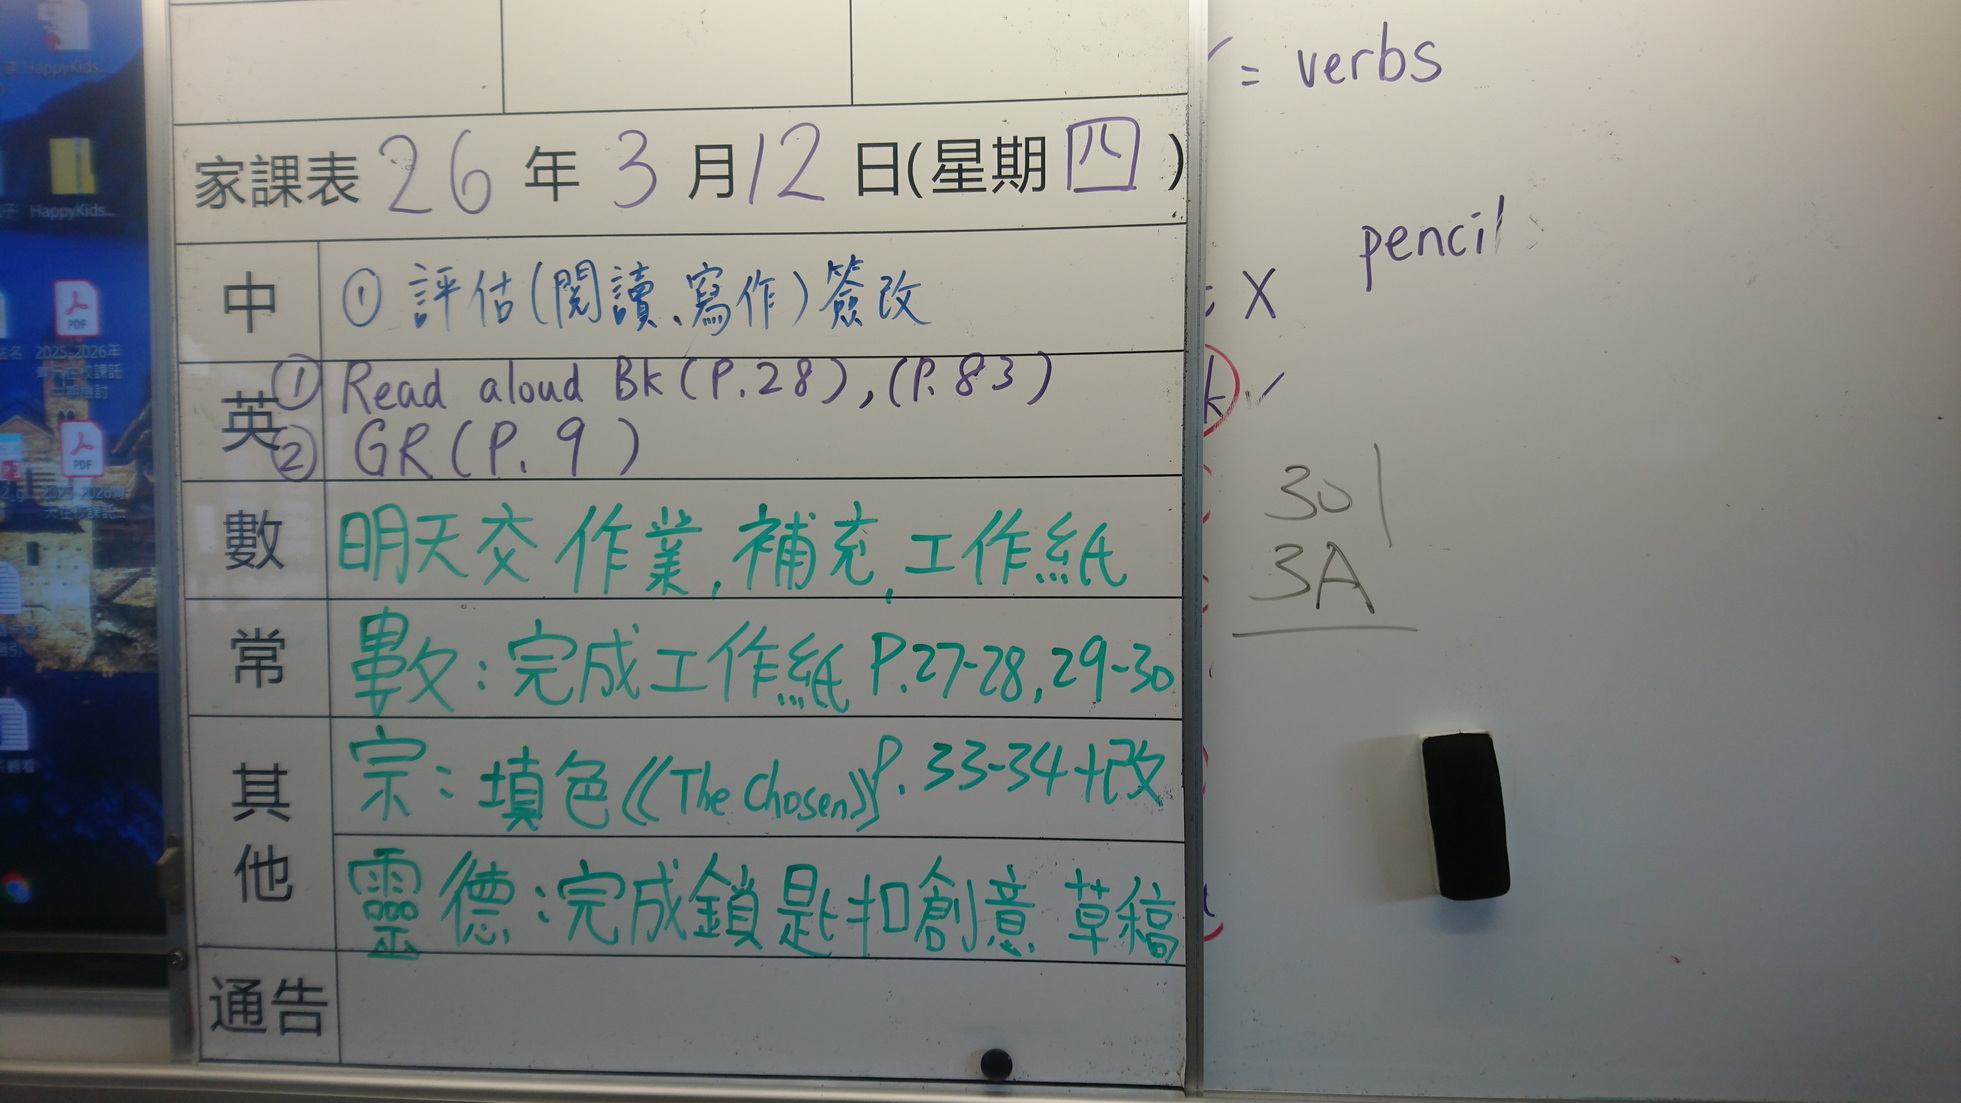 家課表 26 年 3 月 12 日(星期 四 )
中 ① 評估(閱讀、寫作)簽改
英 ① Read aloud Bk (P.28), (P.83)
② GR (P. 9 )
數 明天交 作業, 補充, 工作紙
常 數: 完成工作紙 P.27-28, 29-30
其他 宗: 填色《The Chosen》P. 33-34+改
靈 德: 完成鎖匙扣創意 草稿
通告
= verbs
pencil
X
k
30
3A
HappyKids...
HappyKids...
PDF
2025-2026年
PDF